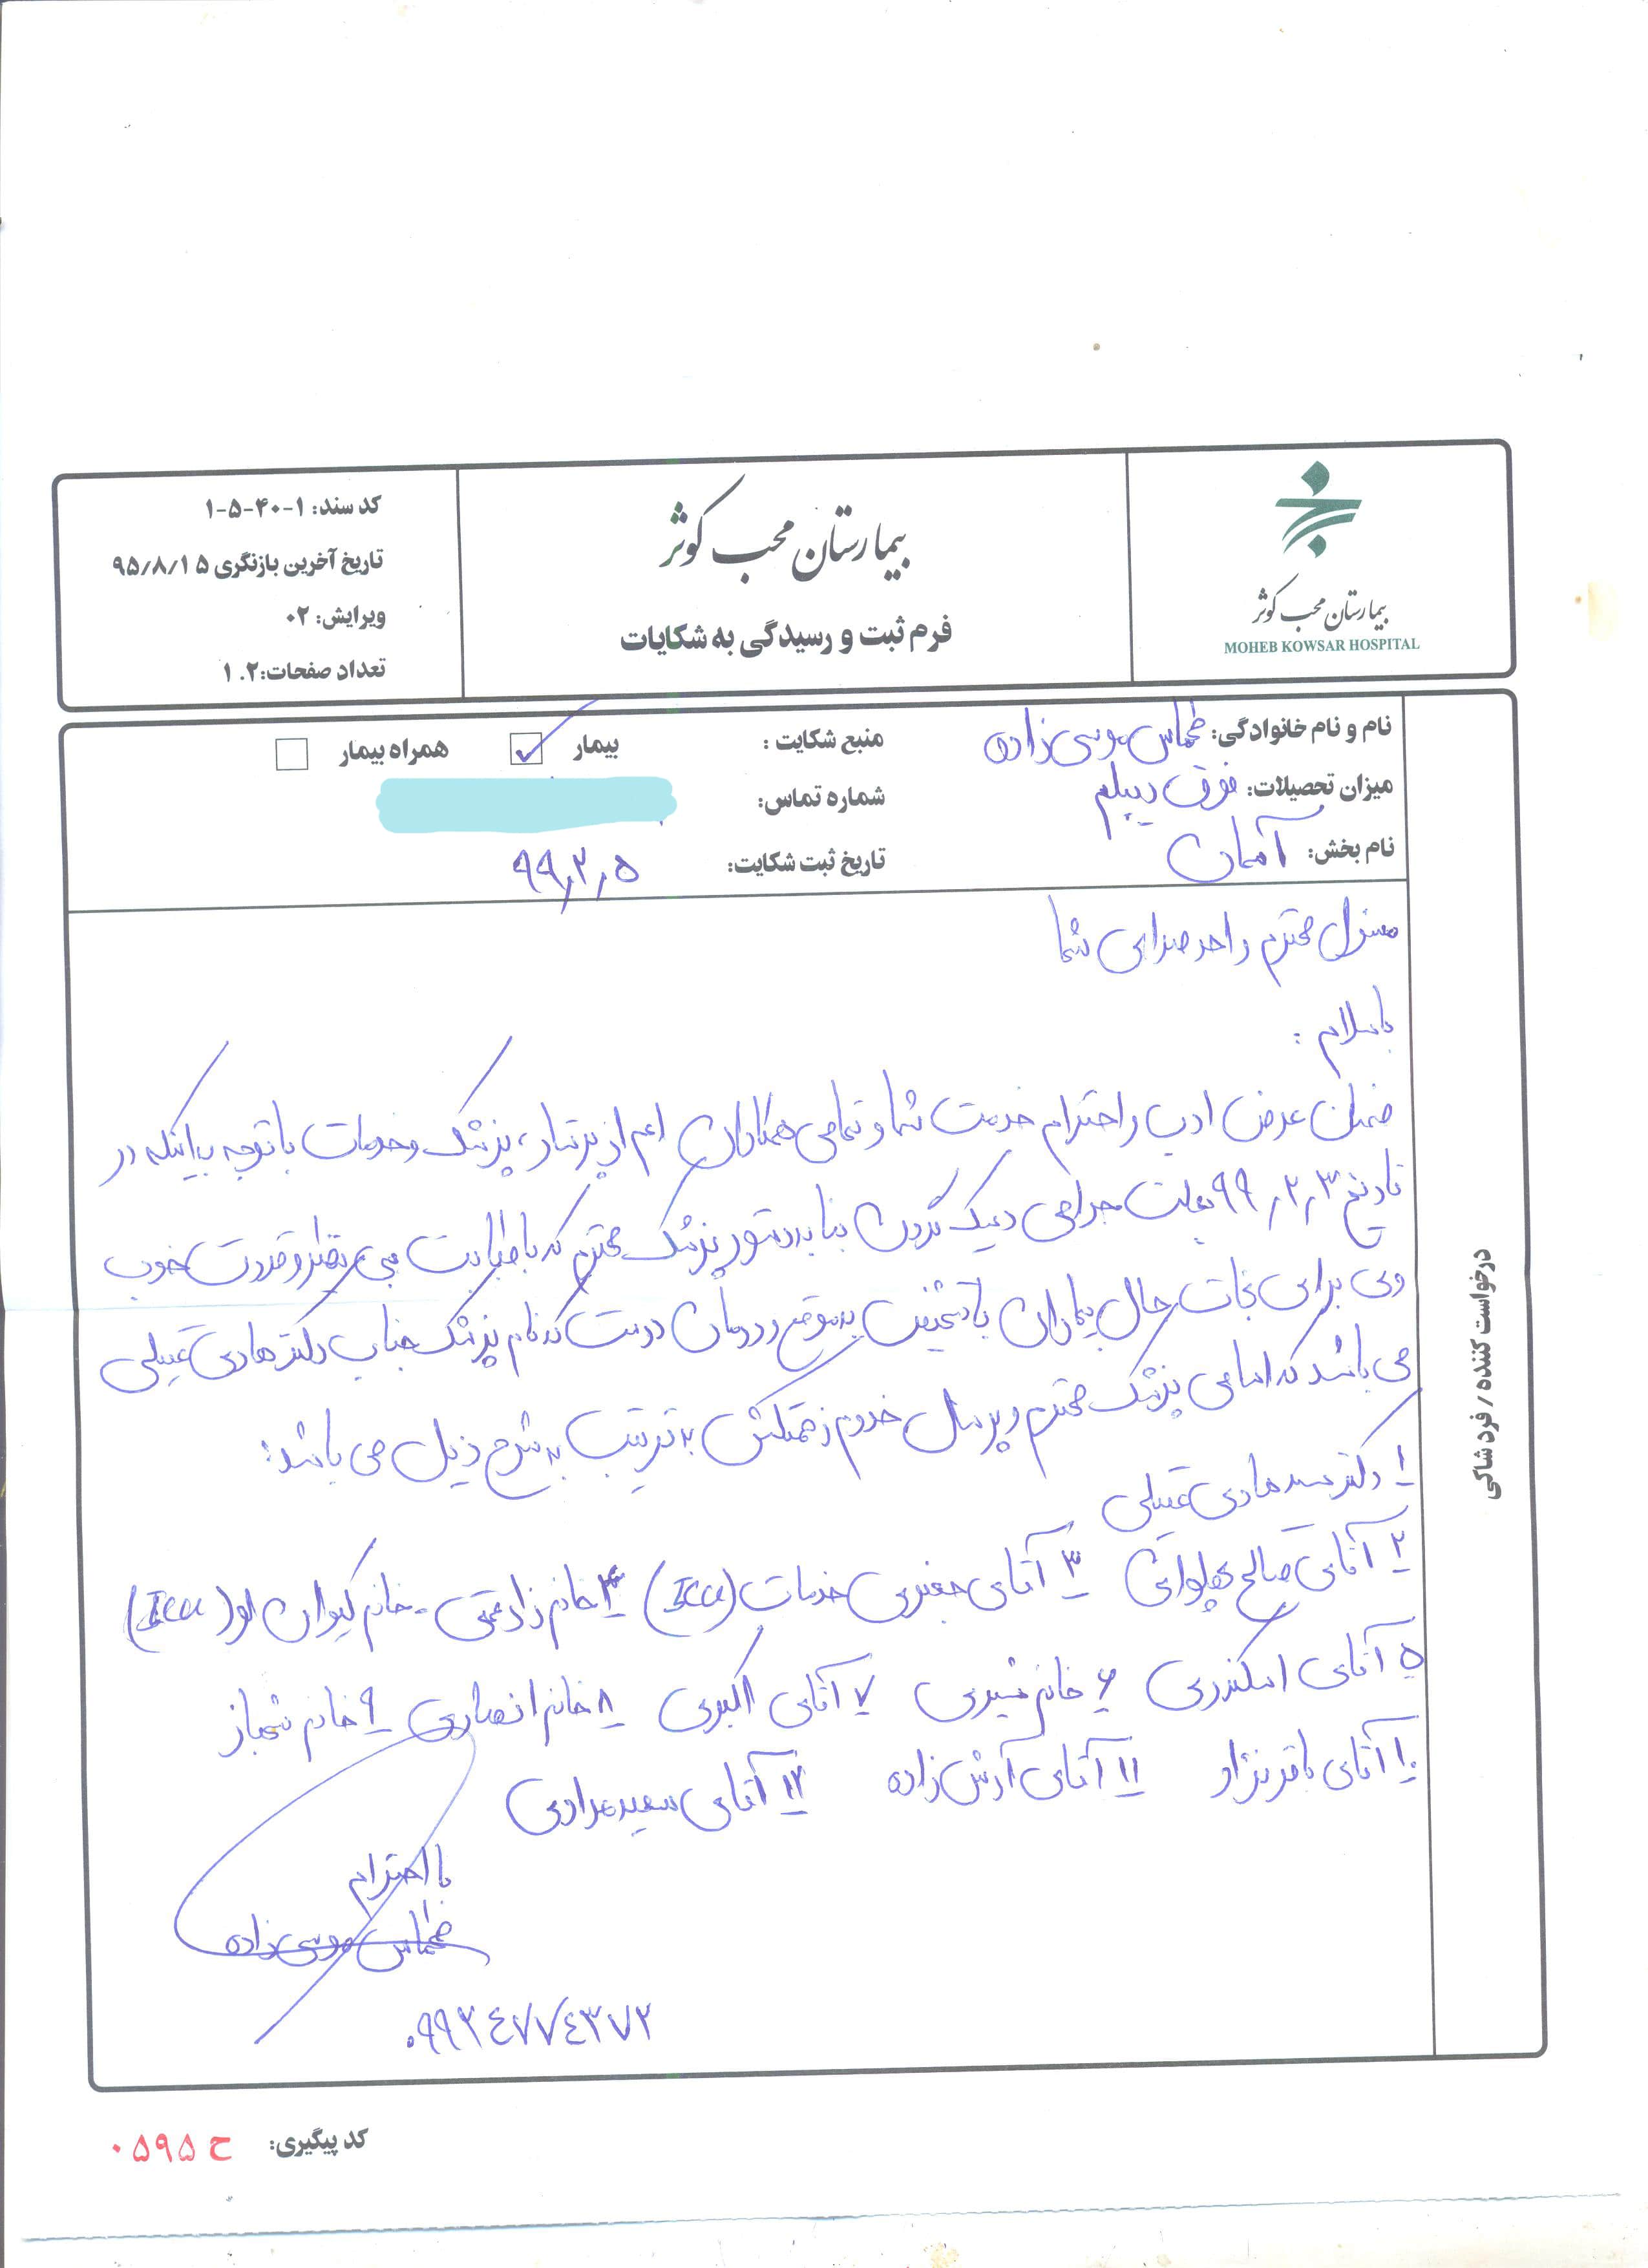 بیمارستان محب کوثر
MOHEB KOWSAR HOSPITAL
بیمارستان محب کوثر
فرم ثبت و رسیدگی به شکایات
کد سند: ۱-۴۰-۵-۱
تاریخ آخرین بازنگری ۹۵/۸/۱۵
ویرایش: ۰۲
تعداد صفحات: ۱.۲
نام و نام خانوادگی: طهماس موسی زاده
منبع شکایت : بیمار ✓ همراه بیمار
میزان تحصیلات: فوق دیپلم
شماره تماس:
نام بخش: آسمان
تاریخ ثبت شکایت: ۹۹,۲,۵
درخواست کننده / فرد شاکی
مسئول محترم واحد صدای شما
باسلام :
ضمن عرض ادب و احترام خدمت شما و تمامی همکاران اعم از پرستار، پزشک و خدمات با توجه به اینکه در
تاریخ ۹۹,۲,۳ بعلت جراحی دیسک گردن بنا به دستور پزشک محترم که با طبابت بی نظیر و قدرت خوب
وی برای نجات حال بیماران با تشخیص به موقع و درمان درست که نام پزشک جناب دکتر هادی عقیلی
می باشد که اسامی پزشک محترم و پرسنل خدوم زحمتکش به ترتیب به شرح ذیل می باشد:
۱ دکتر سید هادی عقیلی
۲ آقای صالح پهلوانی ۳ آقای جعفری خدمات (ICU) ۴ خانم - خانم کیوان لو (ICU)
۵ آقای اسکندری ۶ خانم ۷ آقای اکبری ۸ خانم انصاری ۹ خانم شهباز
۱۰ آقای باقرنژاد ۱۱ آقای آرش زاده ۱۲ آقای سعید مرادی
با احترام
طهماس موسی زاده
۰۹۹۲۴۷۷۴۳۷۲
کد پیگیری: ح ۰۵۹۵